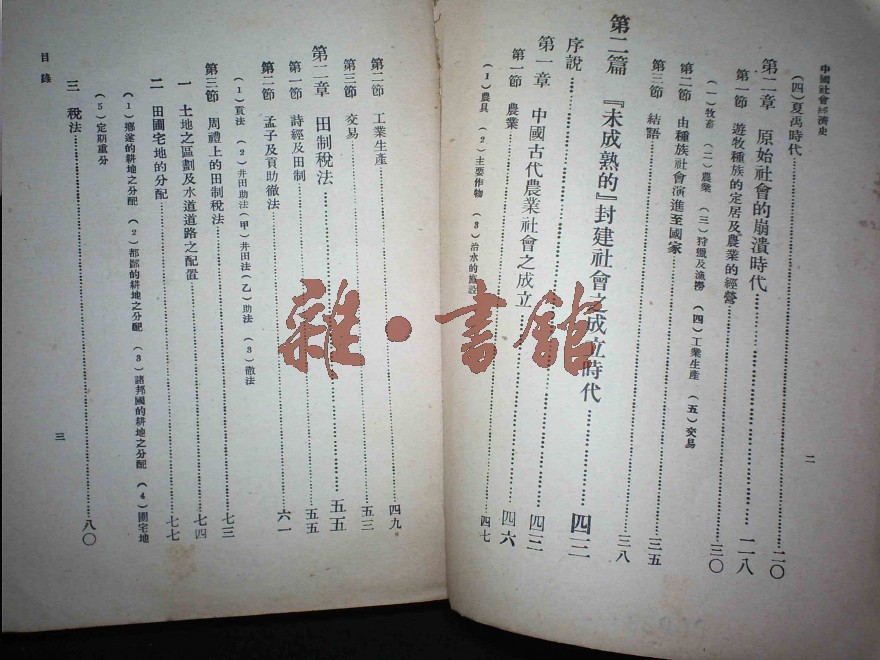 中國社會經濟史
二
(四)夏禹時代……二〇
第二章 原始社會的崩潰時代……二八
第一節 遊牧種族的定居及農業的經營……三〇
(一)牧畜 (二)農業 (三)狩獵及漁撈 (四)工業生產 (五)交易
第二節 由種族社會演進至國家……三五
第三節 結語……三八
第二篇 『未成熟的』封建社會之成立時代……四三
序說……四三
第一章 中國古代農業社會之成立……四六
第一節 農業……四七
(1)農具 (2)主要作物 (3)治水的施設
第二節 工業生產……四九
第三節 交易……五三
第二章 田制稅法……五五
第一節 詩經及田制……五五
第二節 孟子及貢助徹法……六一
(1)貢法 (2)井田助法(甲)井田法(乙)助法 (3)徹法
第三節 周禮上的田制稅法……七三
一 土地之區劃及水道道路之配置……七四
二 田圃宅地的分配……七七
(1)鄉遂的耕地之分配 (2)都鄙的耕地之分配 (3)諸邦國的耕地之分配 (4)園宅地
(5)定期重分
三 稅法……八〇
目錄
三
雜·書館